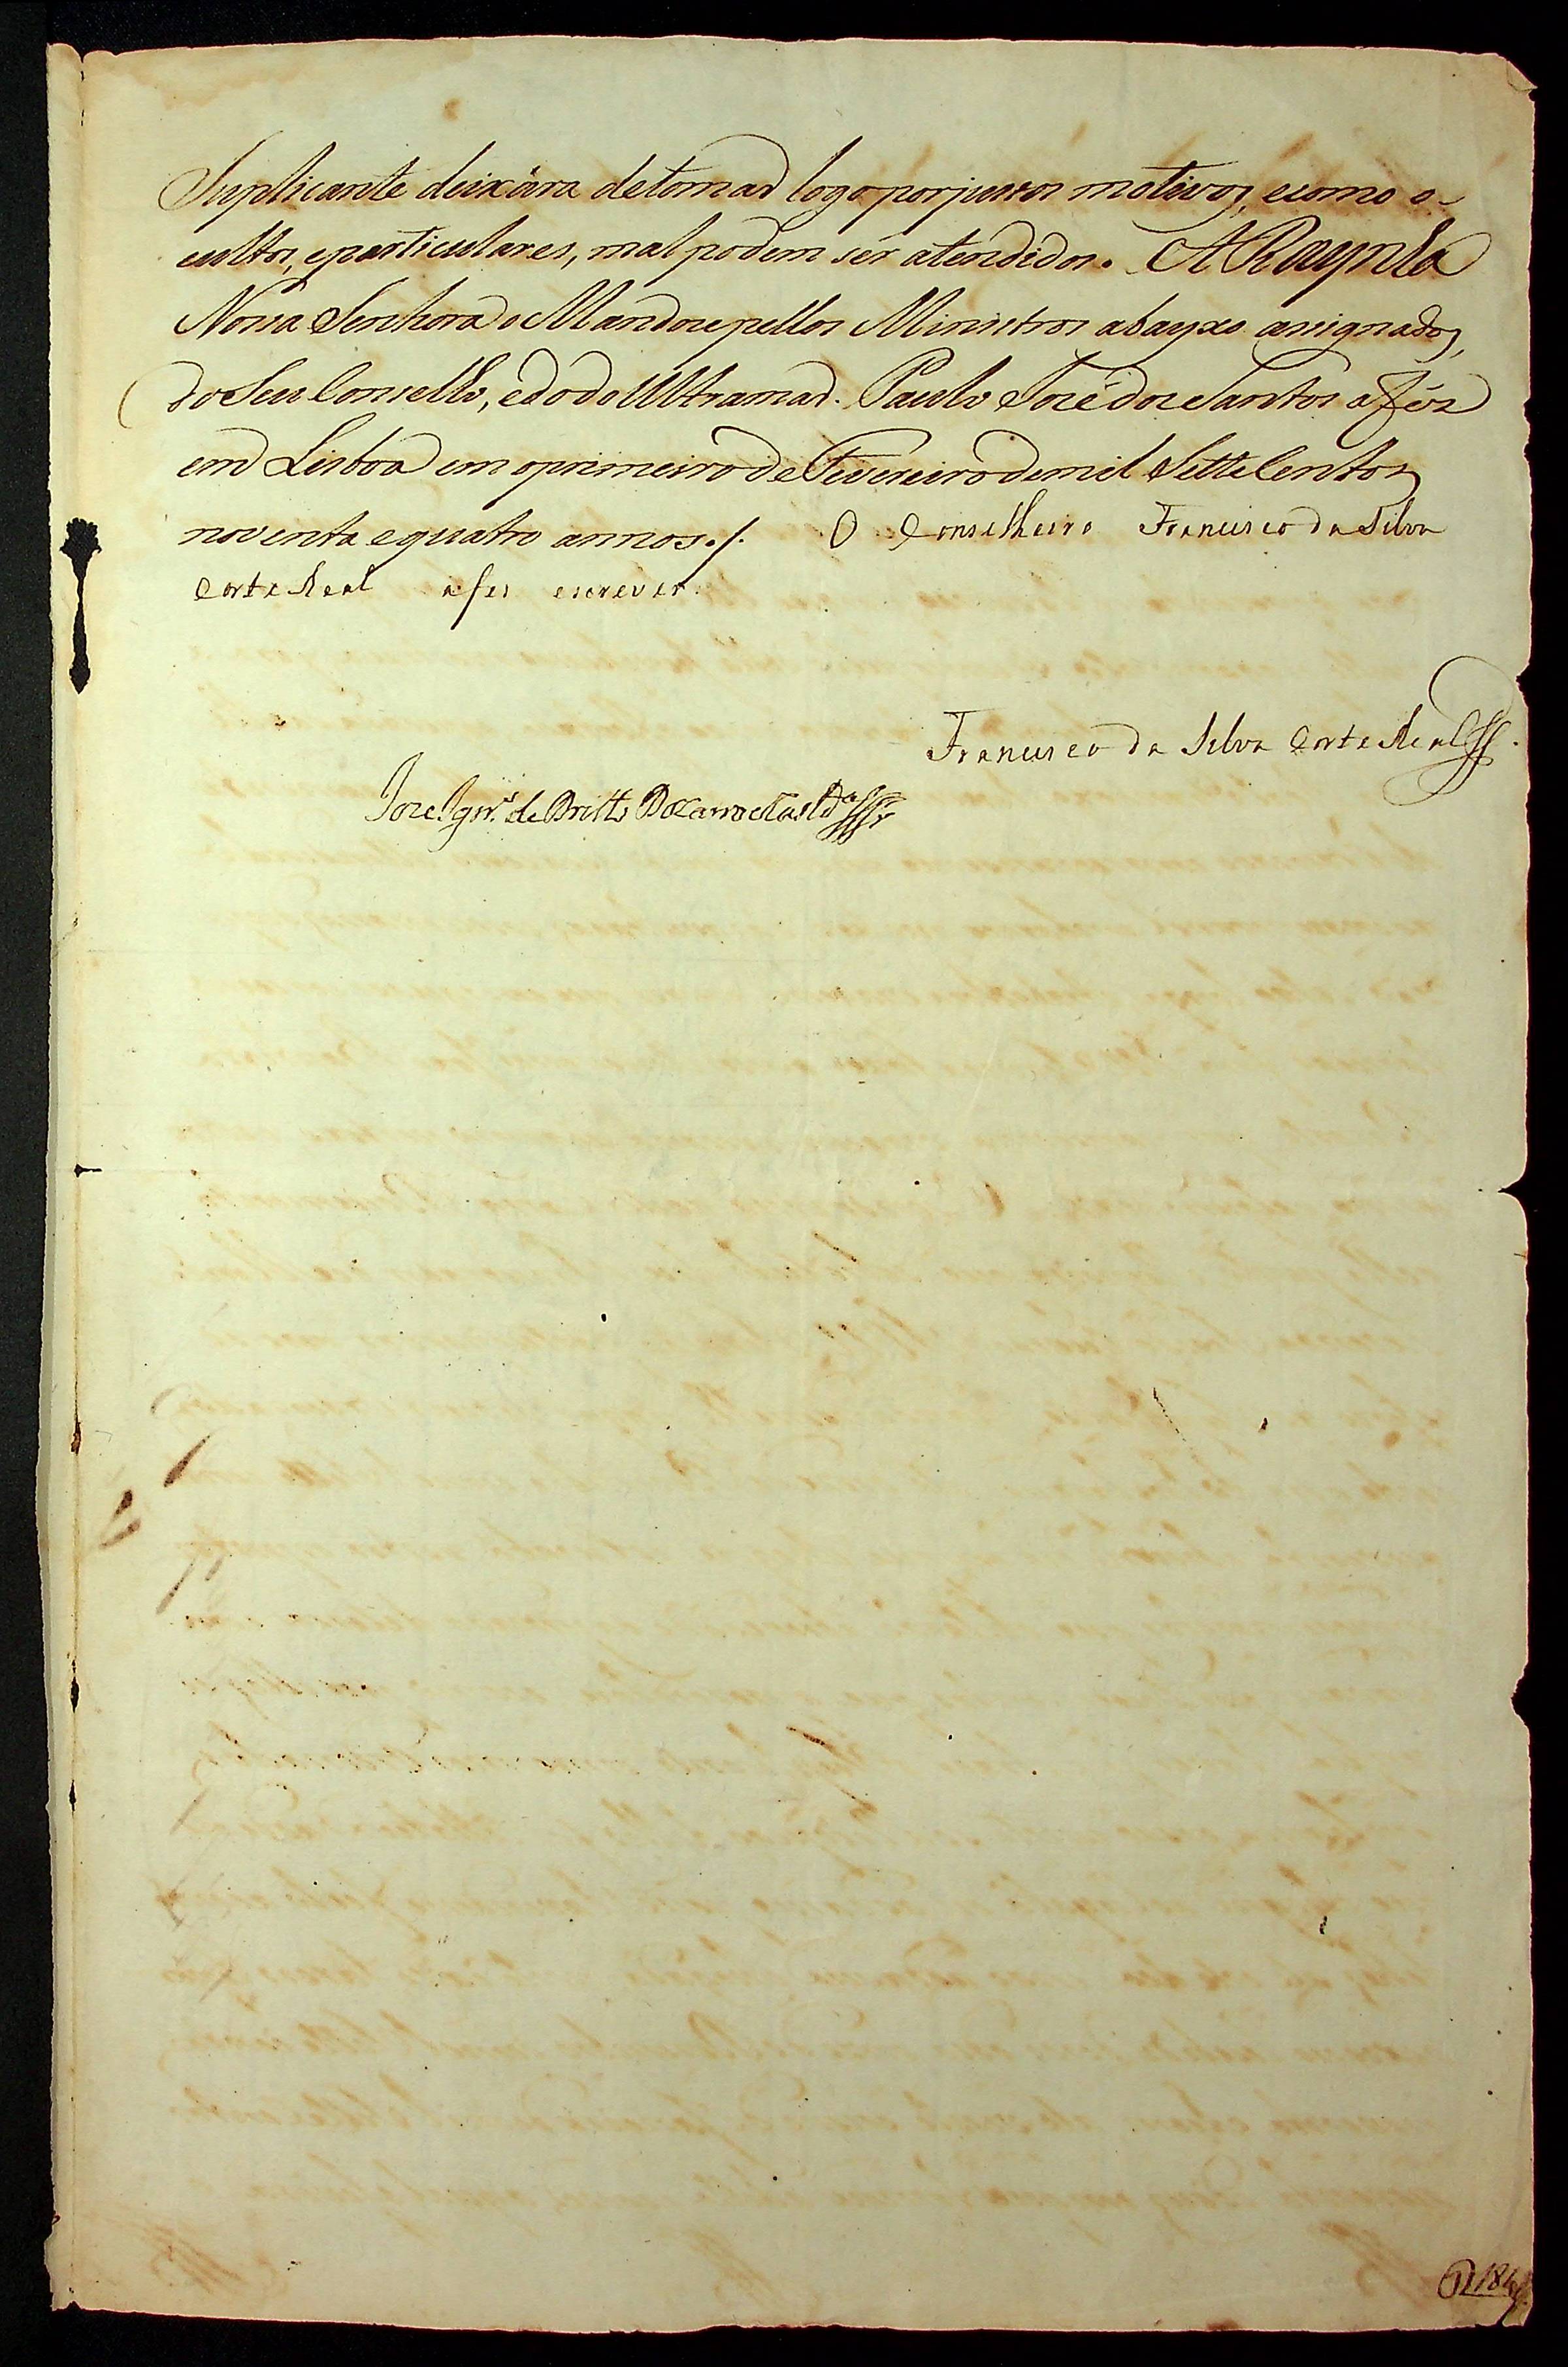 Suplicante deixára de tomar logo por juros motivos, e como o-
cultos, e particulares, mal podem ser atendidos. A Raynha
Nossa Senhora o Mandou pellos Ministros abayxo asignados,
do Seu Conselho, e do do Ultramar. Paulo José dos Santos a fés
em Lisboa em o primeiro de Fevereiro de mil Sette Centos
noventa e quatro annos./. O Conselheiro Francisco da Silva
Corte Real a fes escrever.
Francisco da Silva Corte Real
Joze Ign.º de Britto Bocarro e Cast.ª